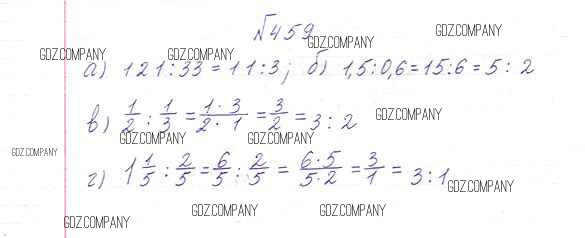 №459
GDZ.COMPANY
GDZ.COMPANY GDZ.COMPANY GDZ.COMPANY
а) 121:33=11:3; б) 1,5:0,6=15:6=5:2
в) 1/2 : 1/3 = 1·3/2·1 = 3/2 = 3:2
GDZ.COMPANY
GDZ.COMPANY GDZ.COMPANY
GDZ.COMPANY
г) 1 1/5 : 2/5 = 6/5 : 2/5 = 6·5/5·2 = 3/1 = 3:1
GDZ.COMPANY
GDZ.COMPANY GDZ.COMPANY
GDZ.COMPANY